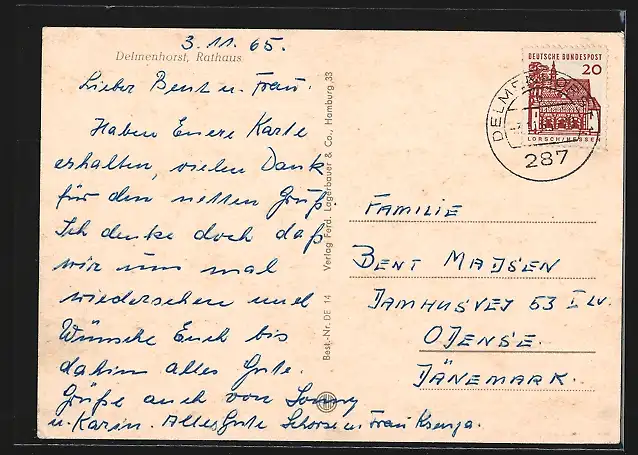 3.11.65.
Delmenhorst, Rathaus
Lieber Bent u. Frau.
Haben Euere Karte
erhalten, vielen Dank
für den netten Gruß.
Ich denke doch daß
wir uns mal
wiedersehen und
Wünsche Euch bis
dahin alles Gute.
Grüße auch von Sonny
u. Karin. Alles Gute Schorse u. Frau Ksenja.
Best.-Nr. DE 14 Verlag Ferd. Lagerbauer & Co., Hamburg 33
DEUTSCHE BUNDESPOST
20
LORSCH/HESSEN
DELMENHORST
287
FAMILIE
BENT MADSEN
DAMHUSVEJ 63 I LV.
ODENSE.
DÄNEMARK.